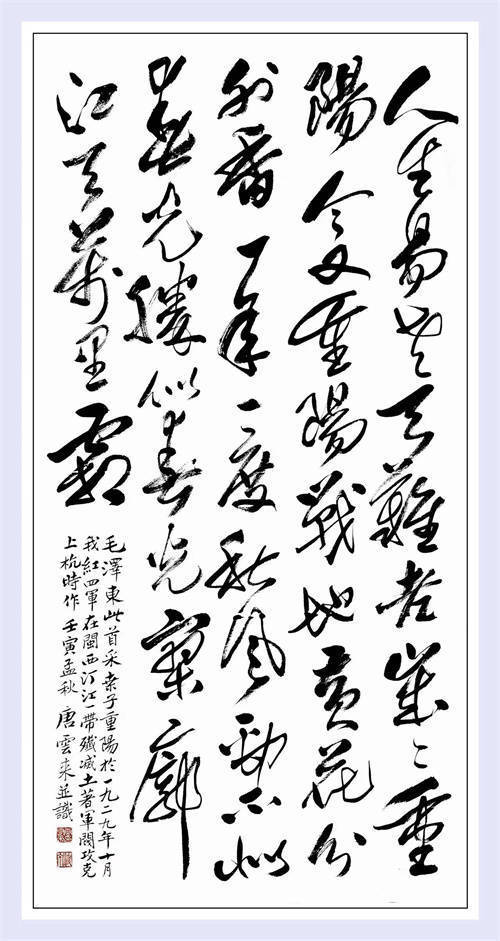 人生易老天難老歲〻重
陽今又重陽戰地黃花分
外香一年一度秋風勁不似
春光勝似春光寥廓
江天萬里霜
毛澤東此首采桑子重陽於一九二九年十月
我紅四軍在閩西汀江一帶殲滅土著軍閥攻克
上杭時作 壬寅孟秋 唐雲來並識